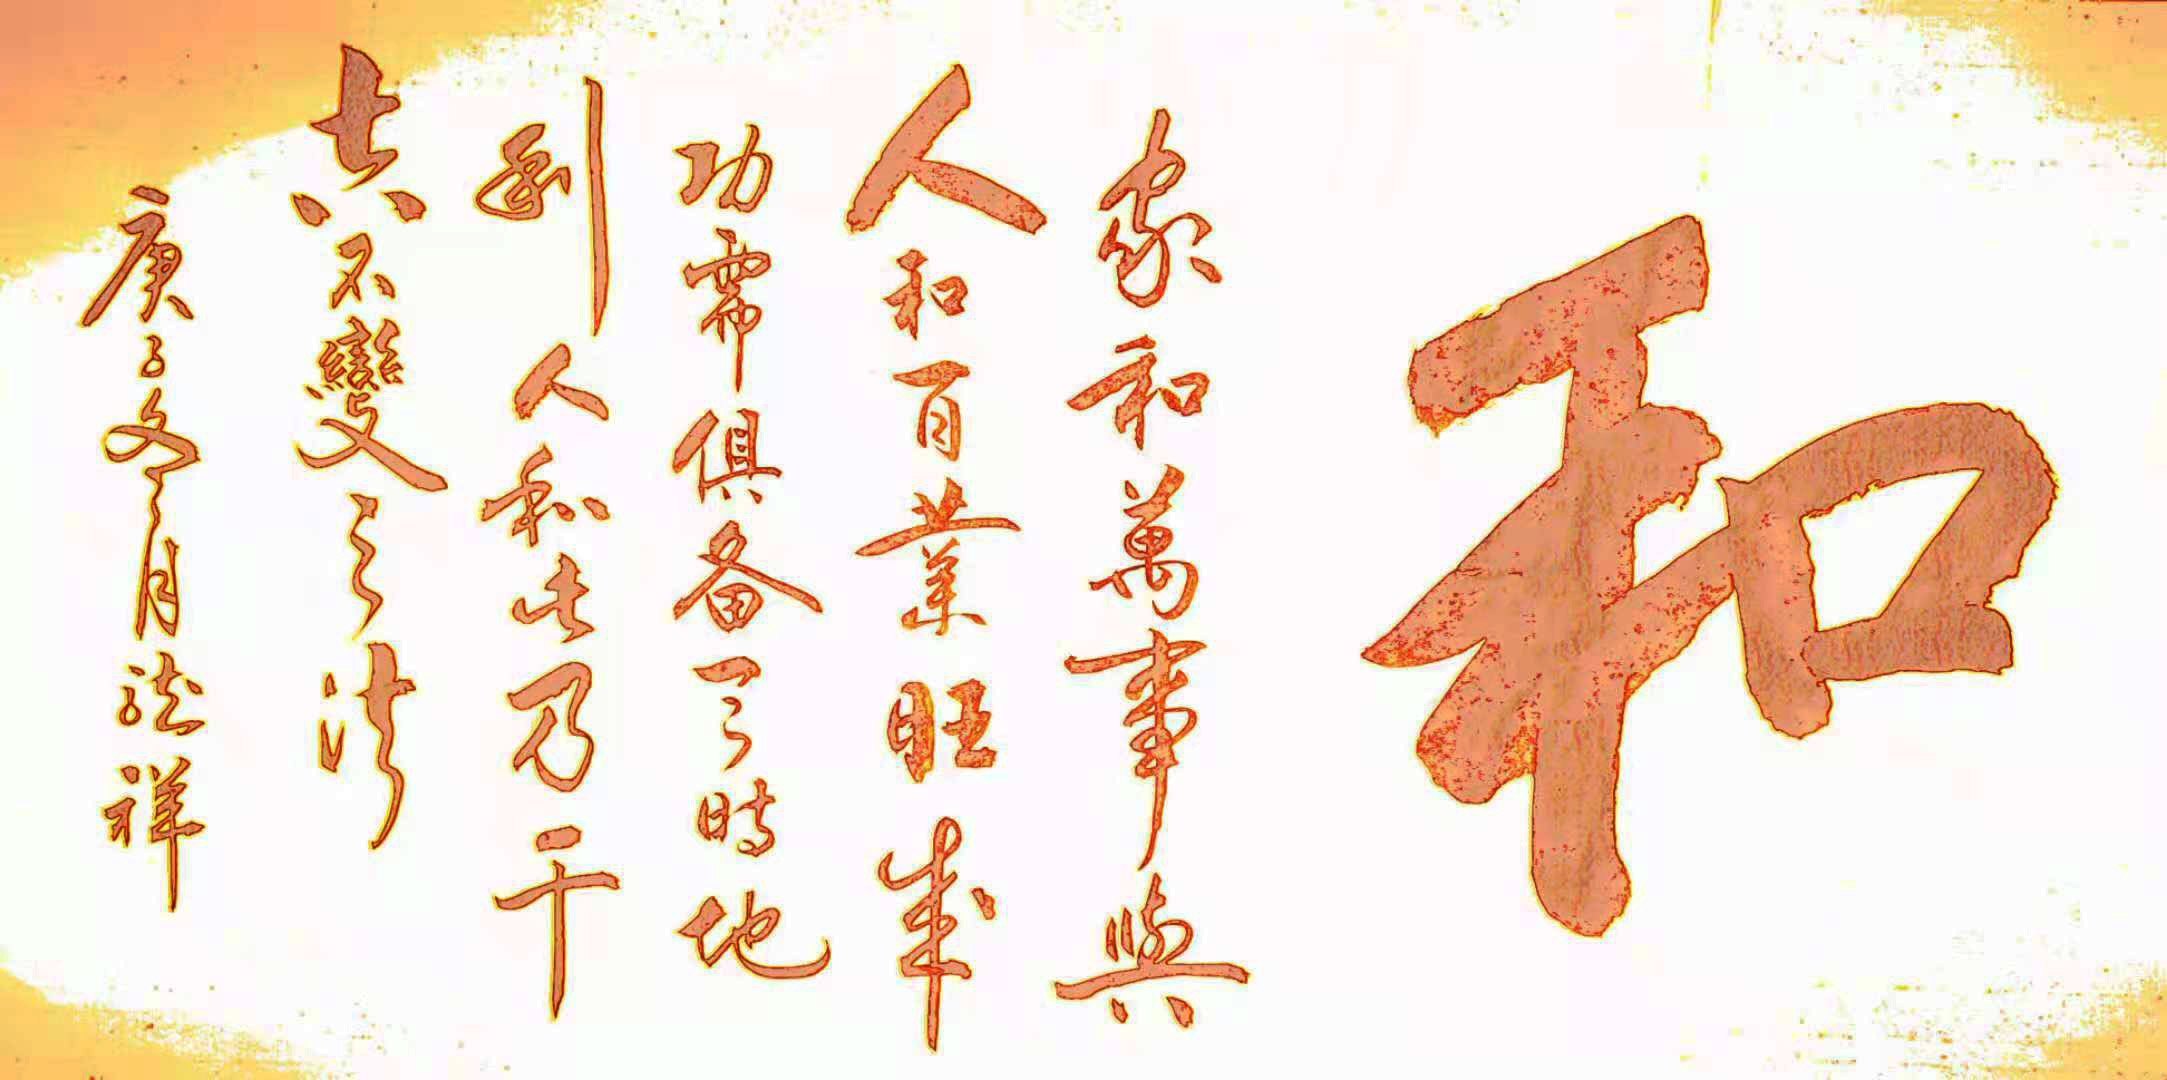 和
家和萬事興
人和百業旺成
功需俱备天時地
利人和此乃千
古不變之
庚子冬月祥